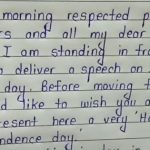 morning respected p
rs and all my dear
I am standing in fro
o deliver a speech on
day. Before moving f
d like to wish you a
resent here a very 'Ha
ndence day'